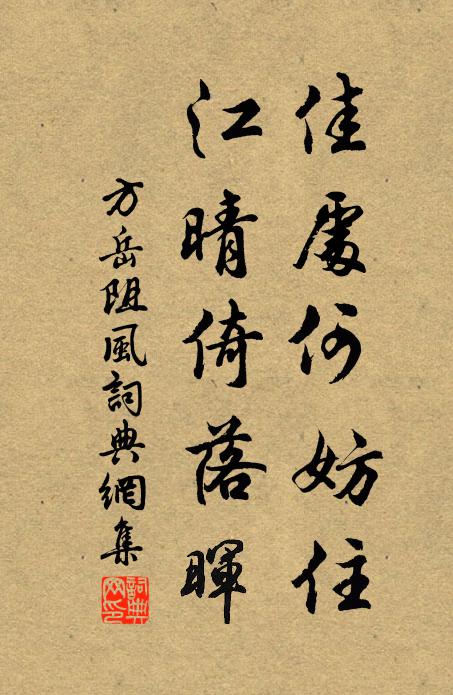 佳處何妨住
江晴倚落暉
方岳阻風詞典網集
詞典网印